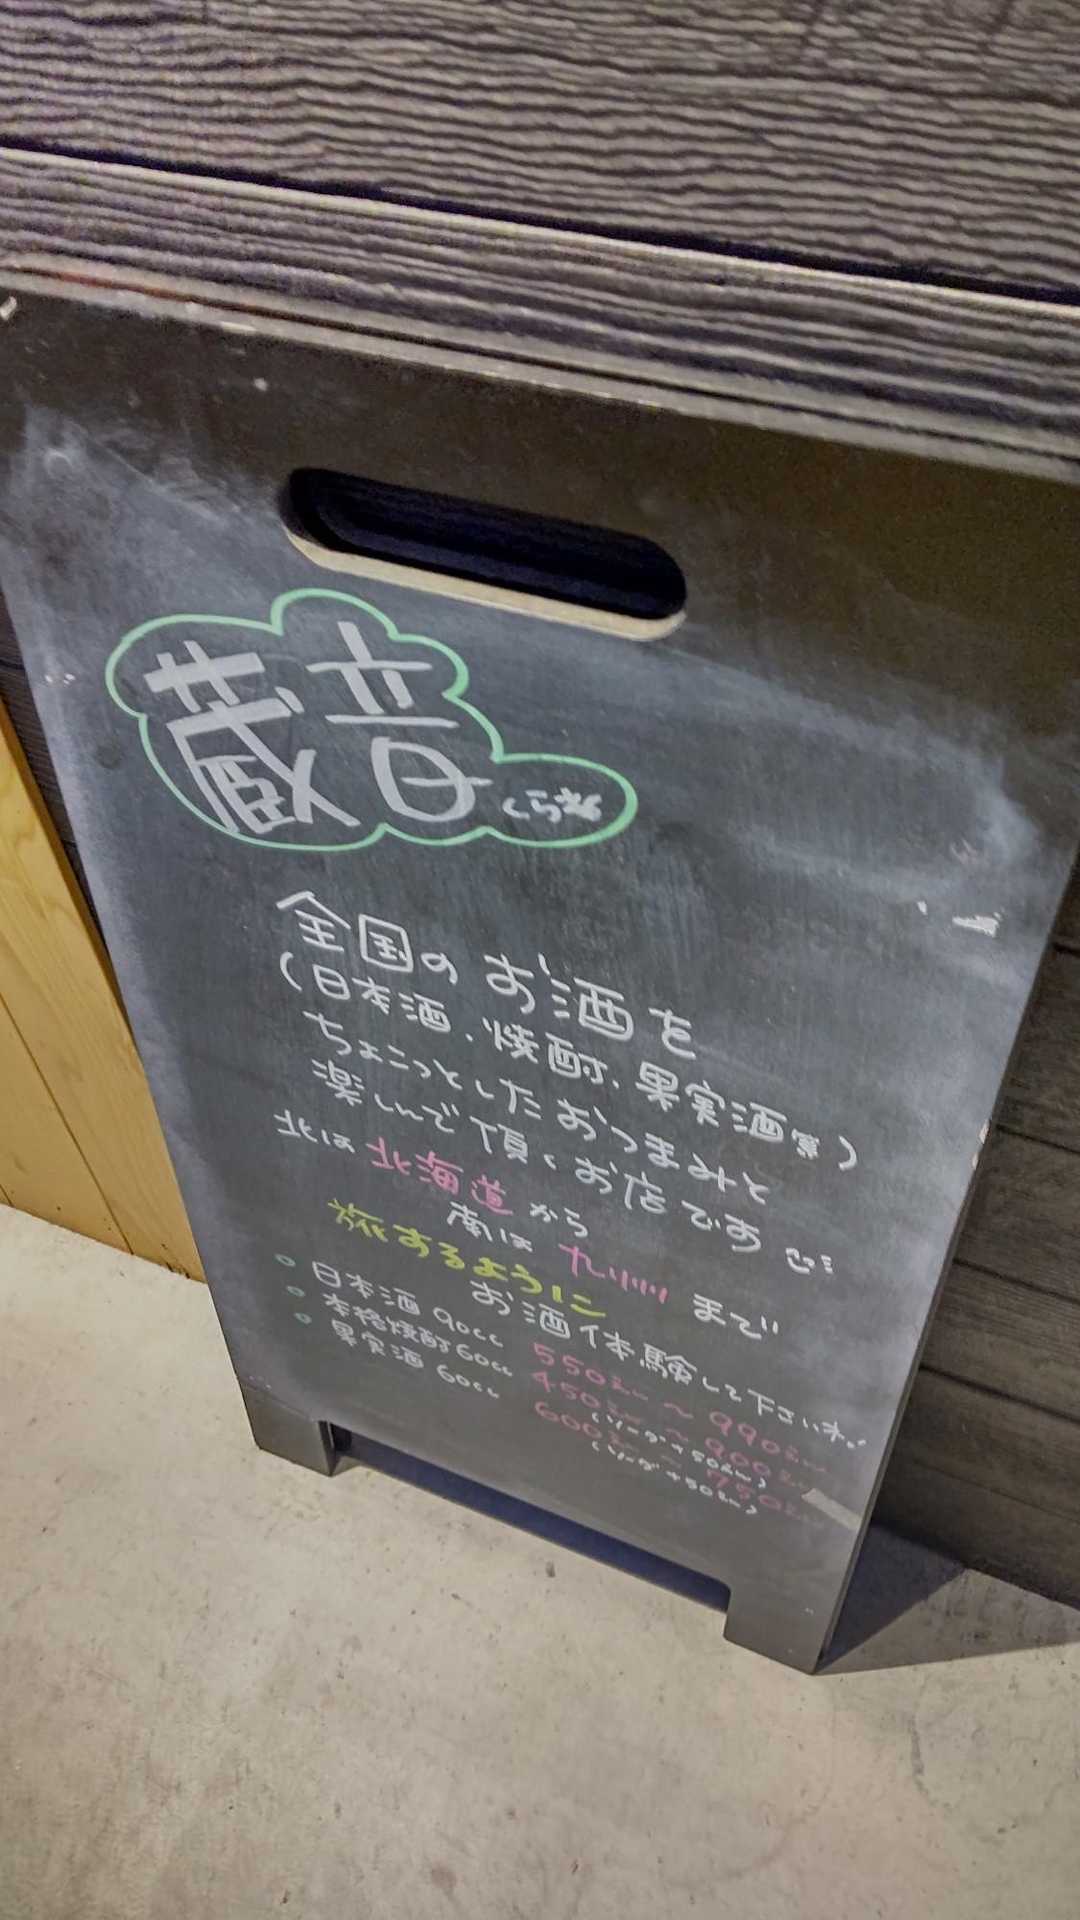 蔵音 くらね
全国の お酒を
(日本酒、焼酎、果実酒等)
ちょこっとしたおつまみと
楽しんで頂くお店です
北は 北海道 から
南は 九州 まで
旅するように
お酒体験して下さいね
○ 日本酒 90cc 550えん 〜 990えん
○ 本格焼酎 60cc 450えん 〜 900えん
(ソーダ +50えん)
○ 果実酒 60cc 600えん 〜 750えん
(ソーダ +50えん)